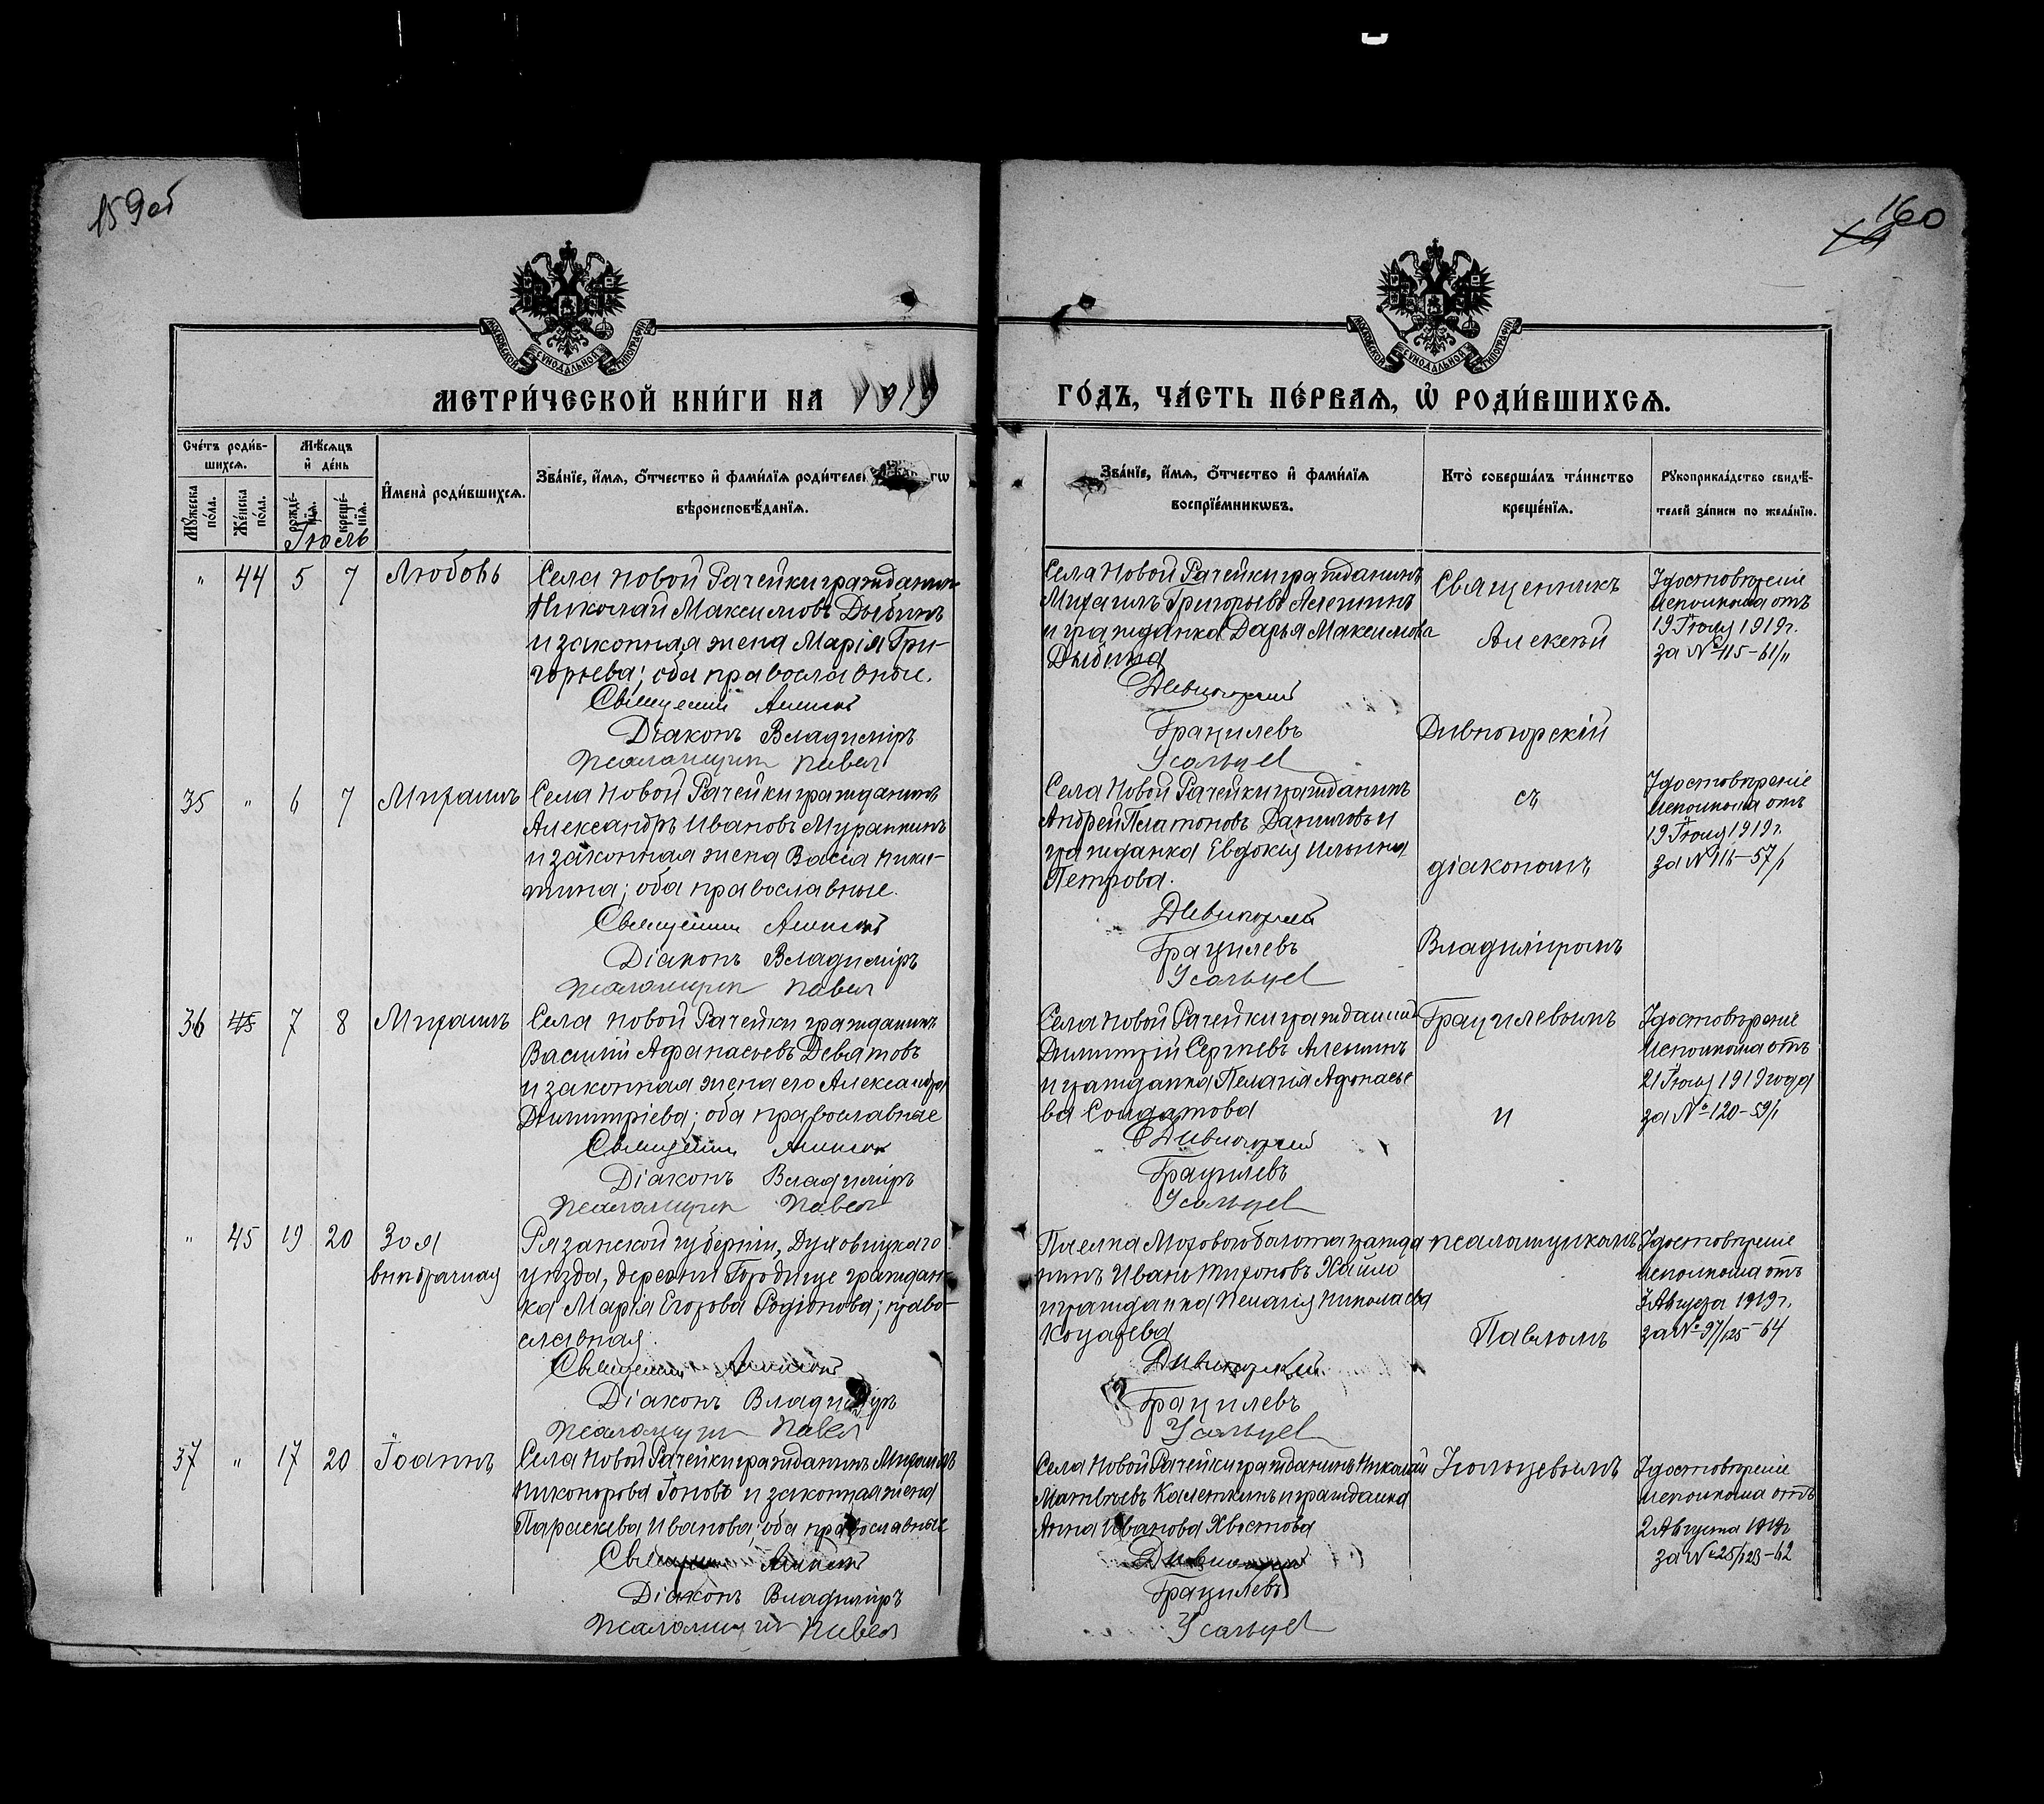 159об
160
МОСКОВСКОЙ СѴНОДАЛЬНОЙ ТИПОГРАФІИ
МОСКОВСКОЙ СѴНОДАЛЬНОЙ ТИПОГРАФІИ
МЕТРИ́ЧЕСКОЙ КНИ́ГИ НА 1919
ГО́ДЪ, ЧА́СТЬ ПЕ́РВАЯ, Ѡ РОДИ́ВШИХСЯ.
Сче́тъ роди́в-
шихся.
Мꙋ́жеска по́ла.
Же́нска по́ла.
Мѣ́сяцъ
и҆ де́нь
рожде́-нїя.
креще́-нїя.
И҆мена̀ роди́вшихся.
Зва́нїе, и҆́мя, ѻ҆́тчество и҆ фами́лїя роди́телей
вѣроисповѣ́данїя.
Зва́нїе, и҆́мя, ѻ҆́тчество и҆ фами́лїя
воспрїе́мникѡвъ.
Кто̀ соверша́лъ та́инство
креще́нїя.
Рꙋкоприкла́дство свидѣ́-
телей за́писи по жела́нїю.
Іюль
" 44 5 7 Любовь
Села Новой Рачейки гражданинъ
Николай Максимовъ Дыбинъ
и законная жена Марія Гри-
горьева; оба православные.
Священник Алексей
Діаконъ Владиміръ
Псаломщик Павел
Села Новой Рачейки гражданинъ
Михаилъ Григорьевъ Алешинъ
и гражданка Дарья Максимова
Дыбина
Дивногорский
Грацилевъ
Усольцев
Священникъ
Алексѣй
Дивногорскій
Удостовѣреніе
Исполкома отъ
19 Іюля 1919г.
за № 115-61/11
35 " 6 7 Михаилъ
Села Новой Рачейки гражданинъ
Александръ Ивановъ Муранкинъ
и законная жена Васса Ники-
тина; оба православные.
Священник Алексей
Діаконъ Владиміръ
Псаломщик Павел
Села Новой Рачейки гражданинъ
Андрей Платоновъ Даниловъ и
гражданка Евдокія Ильина
Петрова.
Дивногорский
Грацилевъ
Усольцев
съ
діакономъ
Владиміромъ
Удостовѣреніе
Исполкома отъ
19 Іюля 1919г.
за № 116-57/1
36 45 7 8 Михаилъ
Села Новой Рачейки гражданинъ
Василій Афанасьевъ Девятовъ
и законная жена его Александра
Димитріева; оба православные
Священник Алексей
Діаконъ Владиміръ
Псаломщик Павел
Села Новой Рачейки гражданинъ
Димитрій Сергѣевъ Алешинъ
и гражданка Пелагія Афонасье
ва Солдатова
Дивногорский
Грацилевъ
Усольцев
Грацилевымъ
и
Удостовѣреніе
Исполкома отъ
21 Іюля 1919 года
за № 120-59/1
" 45 19 20 Зоя
внѣбрачная
Рязанской губерніи,
уѣзда, деревни Городище граждан-
ка Марія Егорова Родіонова; право-
славная.
Священник Алексей
Діаконъ Владиміръ
Псаломщик Павел
Поселка Мохового болота гражда
нинъ Иванъ Тихоновъ Хайло
и гражданка Пелагія Николаева
Дивногорский
Грацилевъ
Усольцев
псаломщикомъ
Павломъ
Удостовѣреніе
Исполкома отъ
3 Августа 1919г.
за № 97/125-64
37 " 17 20 Іоаннъ
Села Новой Рачейки гражданинъ Михаилъ
Никоноровъ Іоновъ и законная жена
Параскева Иванова; оба православные
Священник Алексей
Діаконъ Владиміръ
Псаломщик Павел
Села Новой Рачейки гражданинъ Николай
Матвѣевъ Калеткинъ и гражданка
Анна Иванова Хвостова
Дивногорский
Грацилевъ
Усольцев
Усольцевымъ
Удостовѣреніе
Исполкома отъ
2 Августа 1919г
за № 25/123-62